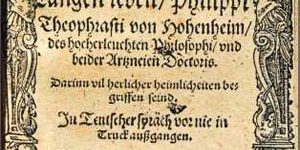 langen leben / Philippi
Theophrasti von Hohenheim /
des hocherleuchten Philosophi / vnd
beider Artzneien Doctoris.
Darinn vil herlicher heimlicheiten be-
griffen seind.
Jn Teutscher spräch vor nie in
Truck außgangen.